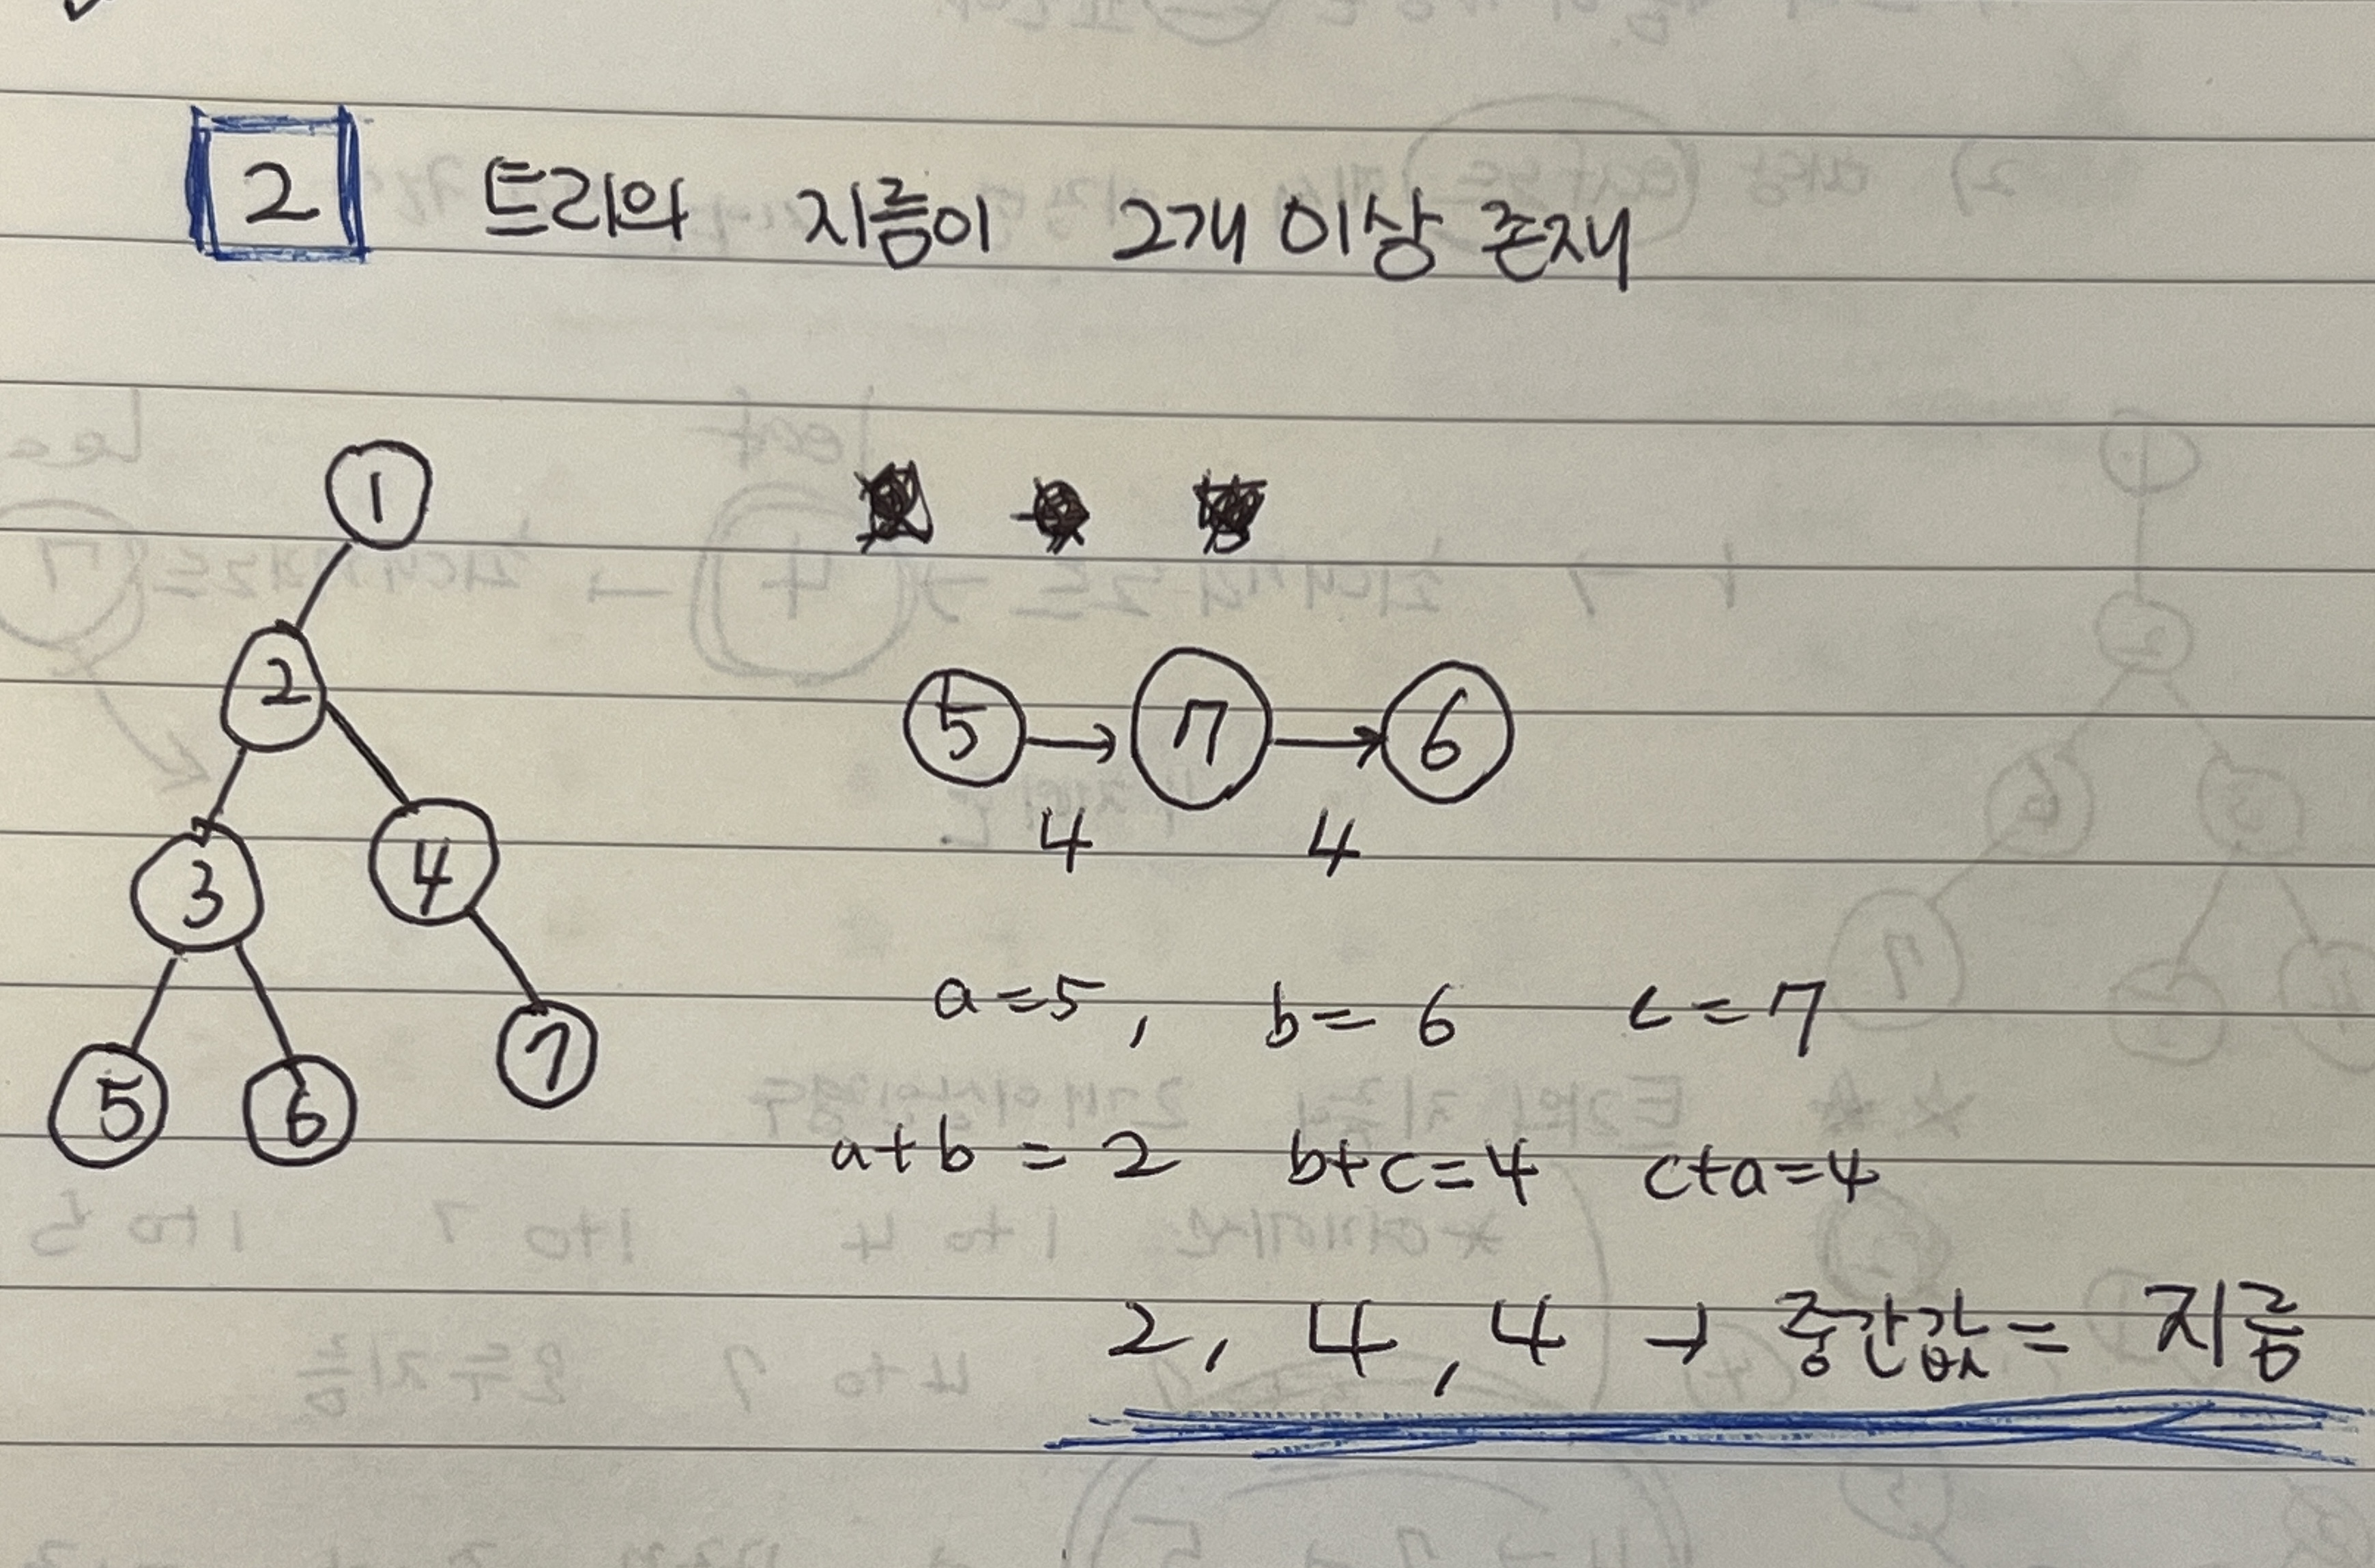 2 트리의 지름이 2개 이상 존재
1
2
3 4
5 6 7
5 → 7 → 6
4 4
a=5, b=6 c=7
a+b=2 b+c=4 c+a=4
2, 4, 4 → 중간값= 지름